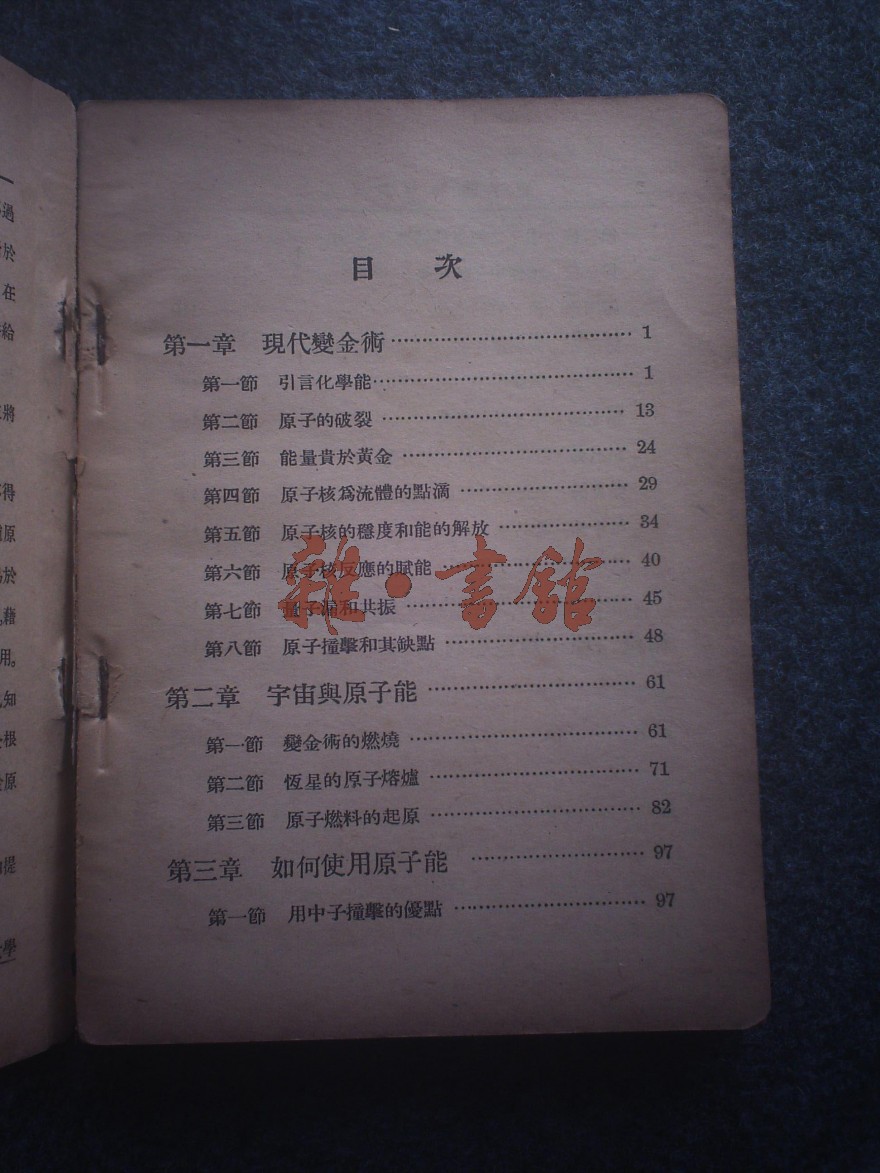 目 次
第一章 現代變金術 1
第一節 引言化學能 1
第二節 原子的破裂 13
第三節 能量貴於黃金 24
第四節 原子核爲流體的點滴 29
第五節 原子核的穩度和能的解放 34
第六節 原子核反應的賦能 40
第七節 量子漏和共振 45
第八節 原子撞擊和其缺點 48
第二章 宇宙與原子能 61
第一節 變金術的燃燒 61
第二節 恆星的原子熔爐 71
第三節 原子燃料的起原 82
第三章 如何使用原子能 97
第一節 用中子撞擊的優點 97
雜·書館
過
於
在
給
將
得
原
於
藉
用。
知
根
原
提
學